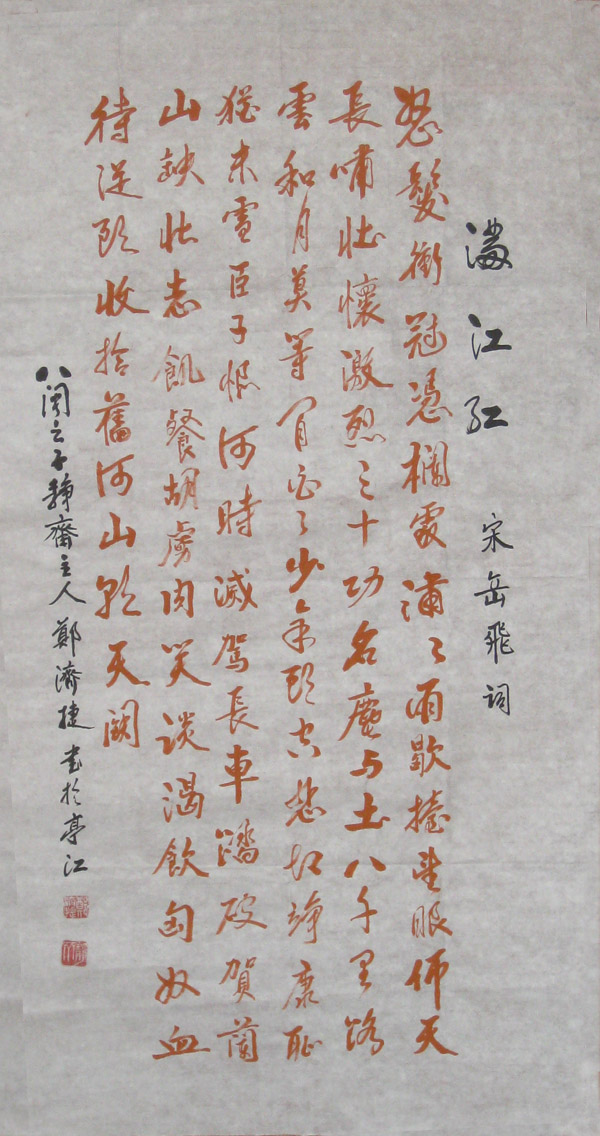 滿江紅 宋岳飛詞
怒髮衝冠憑欄處瀟々雨歇擡望眼仰天
長嘯壯懷激烈三十功名塵与土八千里路
雲和月莫等閒白了少年頭空悲切靖康恥
猶未雪臣子恨何時滅駕長車踏破賀蘭
山缺壯志飢餐胡虜肉笑談渴飲匈奴血
待從頭收拾舊河山朝天闕
八閩之子靜齋主人鄭濟捷書於亭江